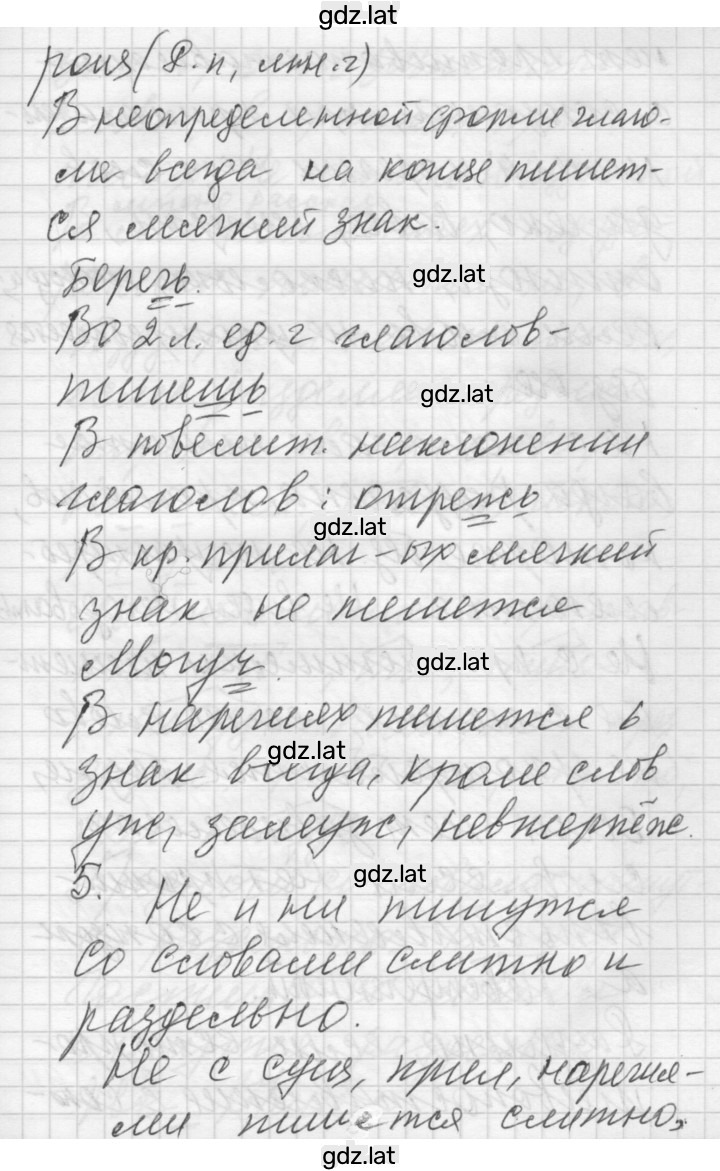 gdz.lat
рощ (Р.п, мн.г)
В неопределенной форме глаго-
ла всегда на конце пишет-
ся мягкий знак.
Беречь. gdz.lat
Во 2 л. ед. г глаголов-
пишешь gdz.lat
В повелит. наклонении
глаголов: отрежь
gdz.lat
В кр. прилаг-ых мягкий
знак не пишется
Могуч. gdz.lat
В наречиях пишется ь
gdz.lat
знак всегда, кроме слов
уж, замуж, невтерпёж.
5. gdz.lat
Не и ни пишутся
со словами слитно и
раздельно.
Не с сущ, прил, наречия-
ми пишется слитно,
gdz.lat